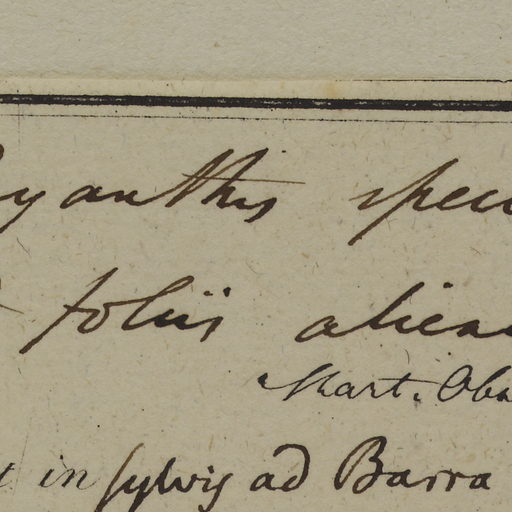 yanthis speci
foliis aliena
Mart. Obs
in sylvis ad Barra